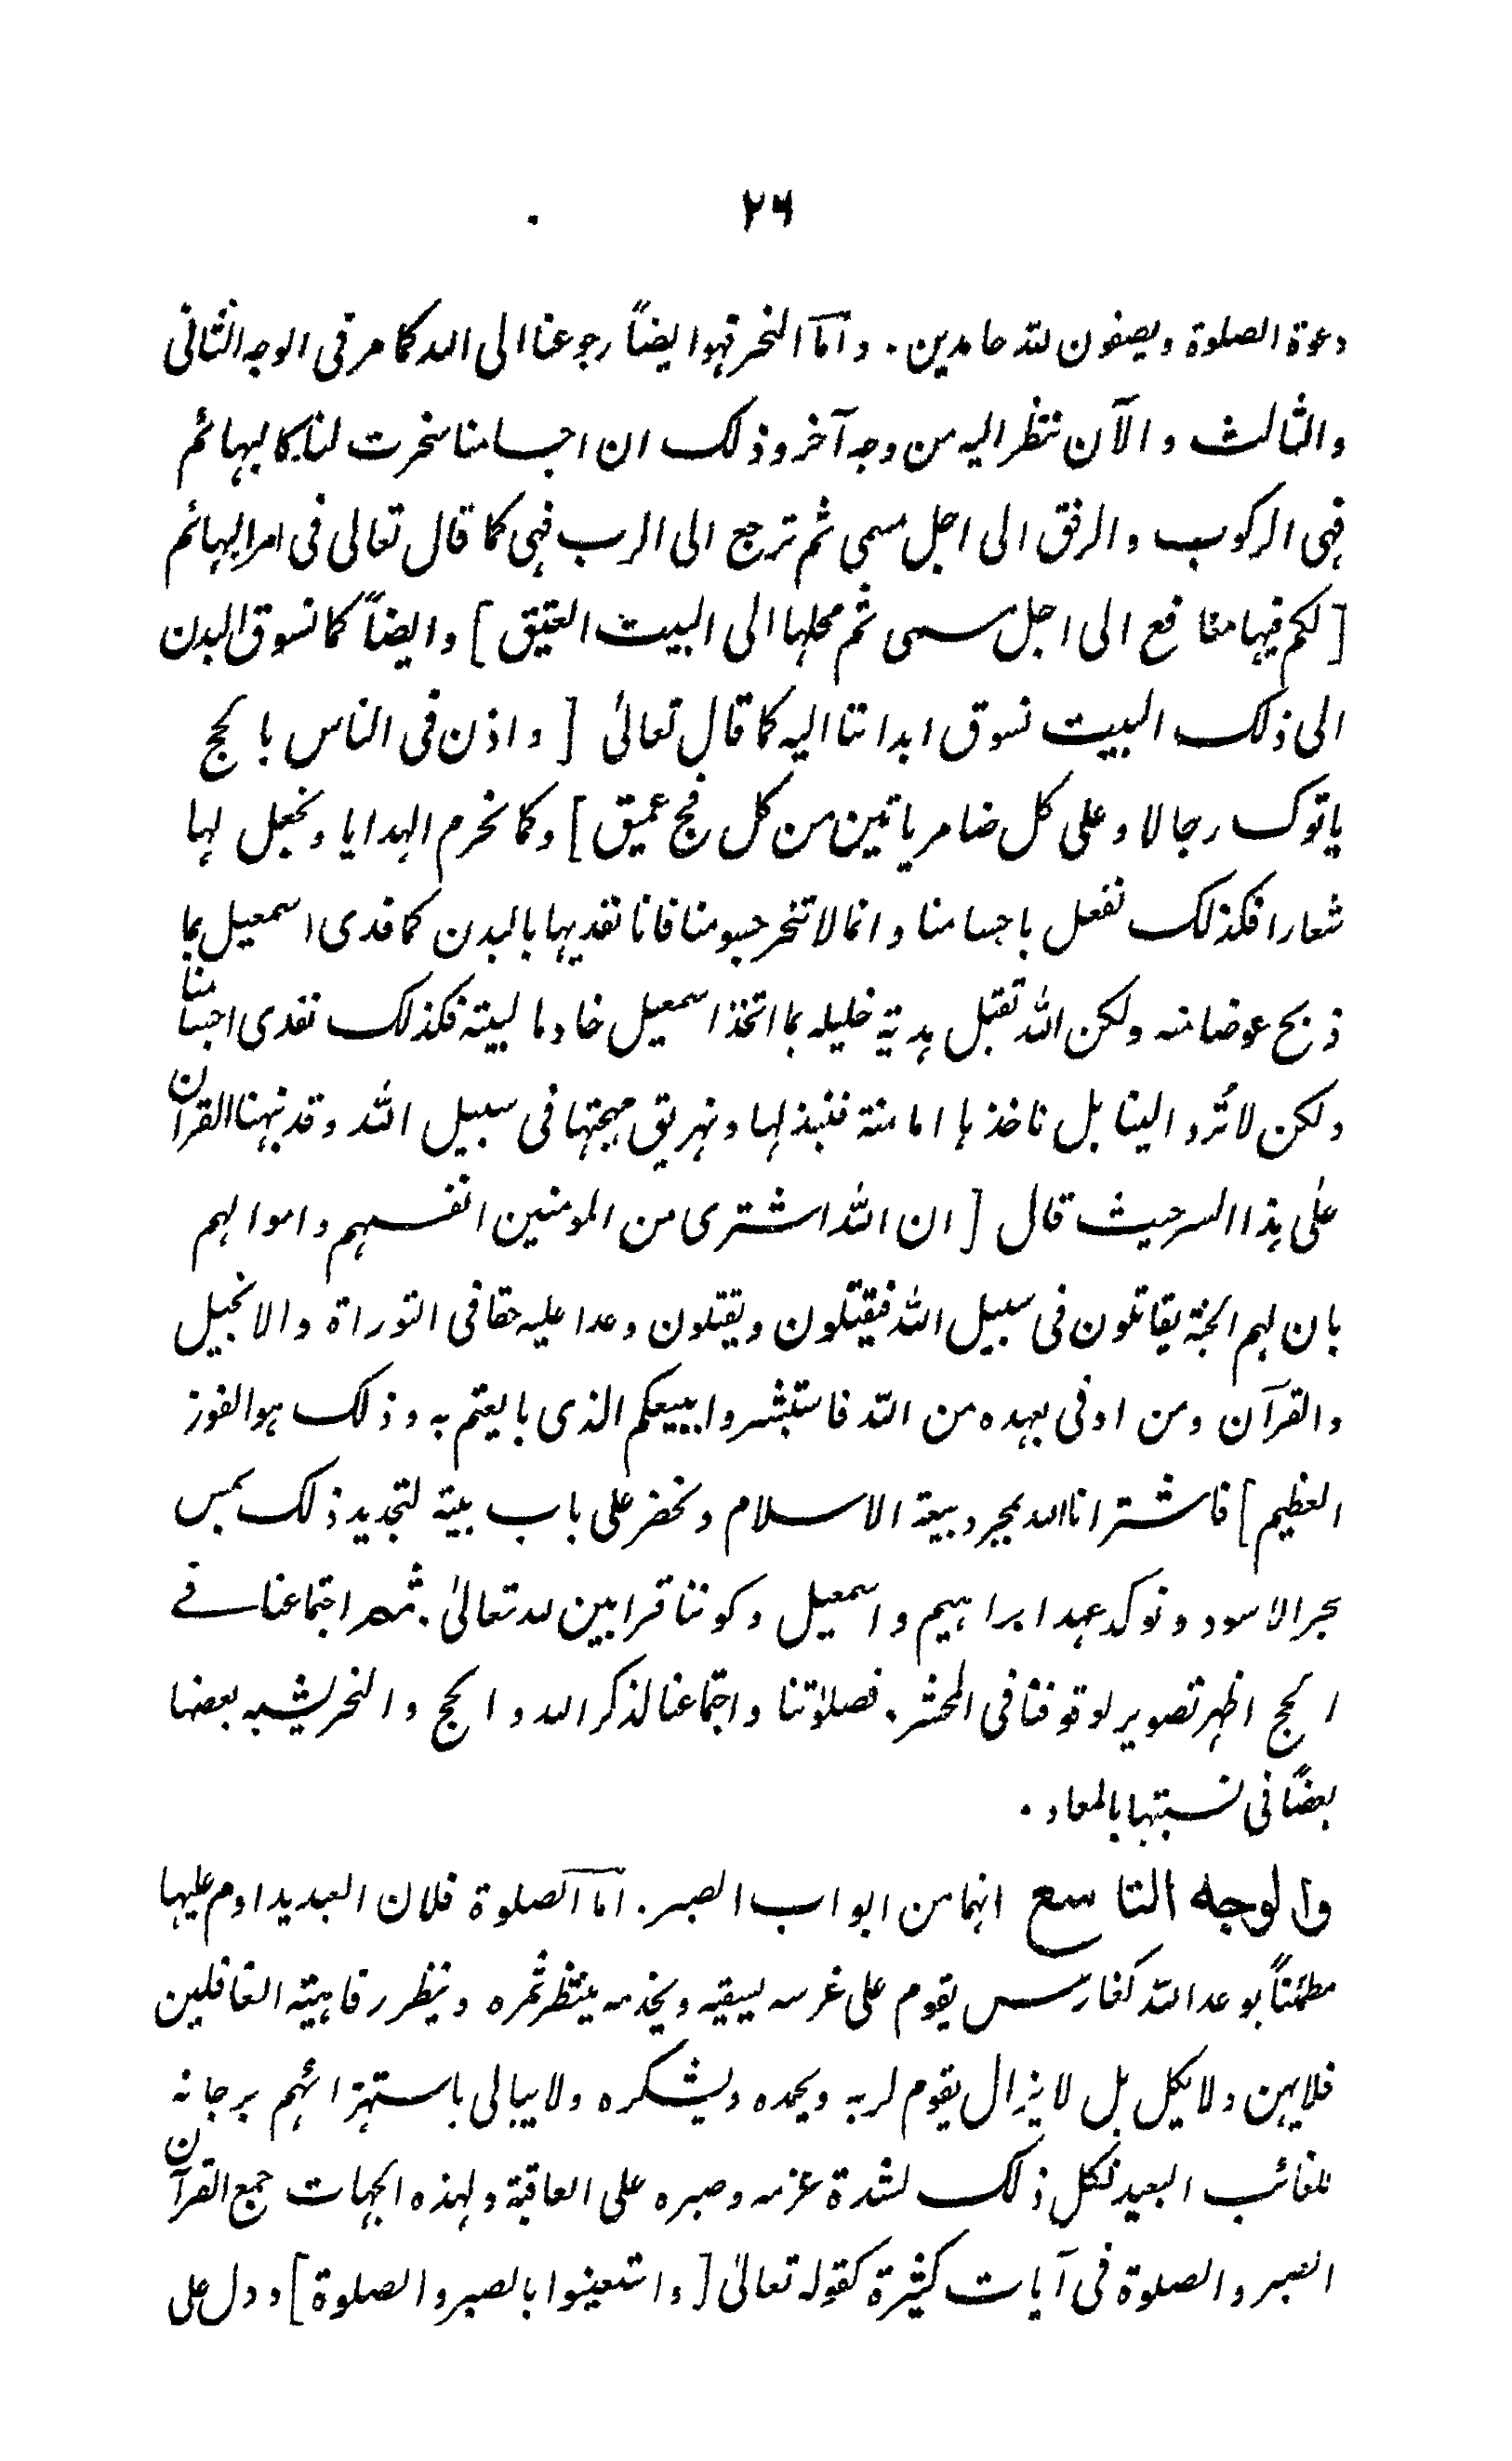 ٢٦
دعوة الصلوة ويصفون لله حامدين. وأما النحر فهو ايضاً رجوعنا الى الله كما مر فى الوجه الثانى
والثالث و الآن ننظر اليه من وجه آخر وذلك ان اجسامنا سخرت لنا كالبهائم
فهى الركوب والرفق الى اجل مسمى ثم ترجع الى الرب فهى كما قال تعالى فى امر البهائم
[لكم فيها منافع الى اجل مسمى ثم محلها الى البيت العتيق] وايضاً كما نسوق البدن
الى ذلك البيت نسوق ابداننا اليه كما قال تعالىٰ [واذن فى الناس بالحج
ياتوك رجالا وعلى كل ضامر ياتين من كل فج عميق] وكما نحرم الهدايا ونجعل لها
شعارا فكذلك نفعل باجسامنا وانما لا تنحر جسومنا فانا نفديها بالبدن كما فدى اسمعيل بما
ذبح عوضا منه ولكن الله تقبل هدية خليله بما اتخذ اسمعيل خادما لبيته فكذلك نفدى اجسامنا
ولكن لا تُرد الينا بل ناخذها امانة فنبذلها ونهريق مهجتها فى سبيل الله وقد نبهنا القرآن
علىٰ هذا السر حيث قال [ان الله اشترى من المومنين انفسهم واموالهم
بان لهم الجنة يقاتلون فى سبيل الله فيقتلون ويقتلون وعدا عليه حقا فى التوراة والانجيل
والقرآن ومن اوفى بعهده من الله فاستبشروا ببيعكم الذى بايعتم به وذلك هو الفوز
العظيم] فاشترانا الله بمجرد بيعة الاسلام ونحضر على باب بيته لتجديد ذلك بمس
حجر الاسود ونوكد عهد ابراهيم واسمعيل وكوننا قرابين لله تعالىٰ. ثم اجتماعنا فے
الحج اظهر تصوير لوقوفنا فى المحشر. فصلاتنا واجتماعنا لذكر الله والحج والنحر يشبه بعضها
بعضاً فى نسبتها بالمعاد.
والوجه التاسع انهما من ابواب الصبر. اما الصلوة فلان العبد يداوم عليها
مطمئناً بوعد الله كغارس يقوم على غرسه يسقيه ويخدمه ينتظر ثمره وينظر رفاهية الغافلين
فلا يهن ولا يكل بل لا يزال يقوم لربه ويحمده ويشكره ولا يبالى باستهزائهم برجائه
للغائب البعيد فكل ذلك لشدة عزمه وصبره على العاقبة ولهذه الجهات جمع القرآن
الصبر والصلوة فى آيات كثيرة كقوله تعالىٰ [واستعينوا بالصبر والصلوة] ودل على